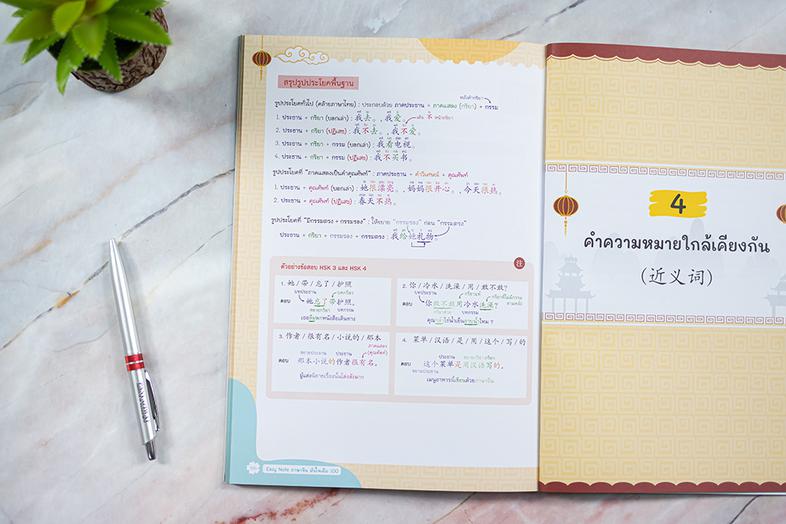 สรุปรูปประโยคพื้นฐาน
หลังคำกริยา
รูปประโยคทั่วไป (คล้ายภาษาไทย) : ประกอบด้วย ภาคประธาน + ภาคแสดง (กริยา) + กรรม
1. ประธาน + กริยา (บอกเล่า) : 我去。, 我爱。
2. ประธาน + กริยา (ปฏิเสธ) : 我不去。, 我不爱。
3. ประธาน + กริยา + กรรม (บอกเล่า) : 我看电视。
4. ประธาน + กริยา + กรรม (ปฏิเสธ) : 我不买书。
รูปประโยคที่ "ภาคแสดงเป็นคำคุณศัพท์" : ภาคประธาน + คำวิเศษณ์ + คุณศัพท์
1. ประธาน + คุณศัพท์ (บอกเล่า) : 她很漂亮。, 妈妈很开心。, 今天很热。
2. ประธาน + คุณศัพท์ (ปฏิเสธ) : 春天不热。
รูปประโยคที่ "มีกรรมตรง + กรรมรอง" : ให้ขยาย "กรรมรอง" ก่อน "กรรมตรง"
ประธาน + กริยา + กรรมรอง + กรรมตรง : 我给她礼物。
ตัวอย่างข้อสอบ HSK 3 และ HSK 4
注
1. 她 / 带 / 忘了 / 护照
ตอบ 她忘了带护照。
เธอลืมพาหนังสือเดินทาง
2. 你 / 冷水 / 洗澡 / 用 / 敢不敢?
ตอบ 你敢不敢用冷水洗澡?
3. 作者 / 很有名 / 小说的 / 那本
ตอบ 那本小说的作者很有名。
ผู้แต่งนิยายเรื่องนั้นโด่งดังมาก
4. 菜单 / 汉语 / 是 / 用 / 这个 / 写 / 的
ตอบ 这个菜单是用汉语写的。
เมนูอาหารนี้เขียนด้วยภาษาจีน
Easy Note ภาษาจีน มั่นใจเต็ม 100
4
คำความหมายใกล้เคียงกัน
(近义词)